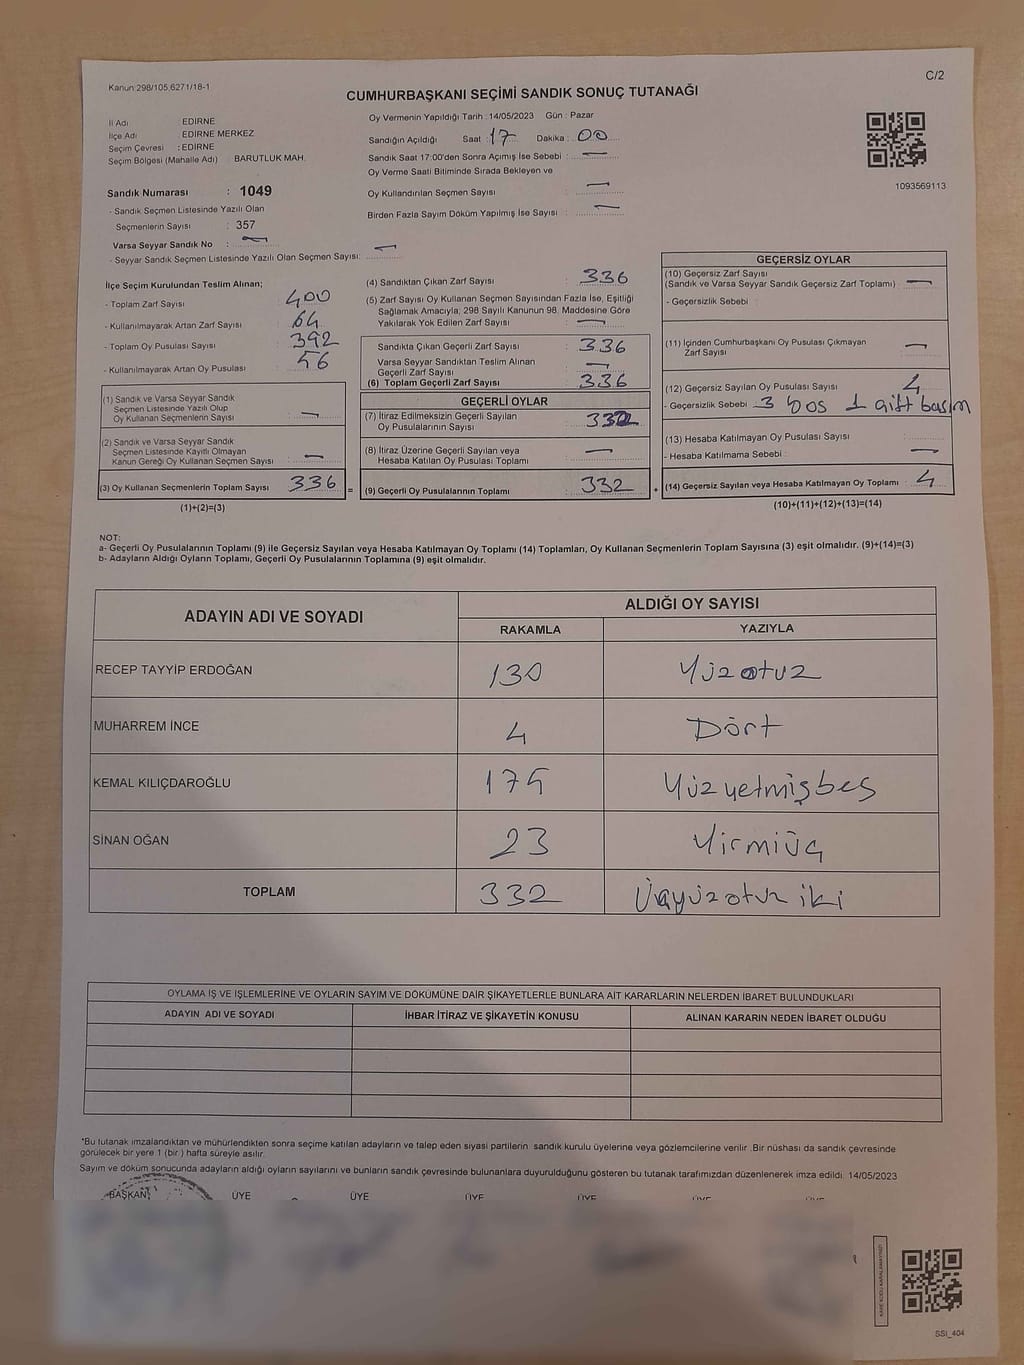 Kanun 298/105,6271/18-1
C/2
CUMHURBAŞKANI SEÇİMİ SANDIK SONUÇ TUTANAĞI
İl Adı : EDİRNE
İlçe Adı : EDİRNE MERKEZ
Seçim Çevresi : EDİRNE
Seçim Bölgesi (Mahalle Adı) BARUTLUK MAH.
Sandık Numarası : 1049
- Sandık Seçmen Listesinde Yazılı Olan
Seçmenlerin Sayısı : 357
Varsa Seyyar Sandık No : —
- Seyyar Sandık Seçmen Listesinde Yazılı Olan Seçmen Sayısı: —
Oy Vermenin Yapıldığı Tarih : 14/05/2023 Gün : Pazar
Sandığın Açıldığı Saat : 17 Dakika : 00
Sandık Saat 17:00'den Sonra Açımış İse Sebebi : —
Oy Verme Saati Bitiminde Sırada Bekleyen ve
Oy Kullandırılan Seçmen Sayısı : —
Birden Fazla Sayım Döküm Yapılmış İse Sayısı : —
1093569113
İlçe Seçim Kurulundan Teslim Alınan;
- Toplam Zarf Sayısı : 400
- Kullanılmayarak Artan Zarf Sayısı : 64
- Toplam Oy Pusulası Sayısı : 392
- Kullanılmayarak Artan Oy Pusulası : 56
(1) Sandık ve Varsa Seyyar Sandık
Seçmen Listesinde Yazılı Olup
Oy Kullanan Seçmenlerin Sayısı : —
(2) Sandık ve Varsa Seyyar Sandık
Seçmen Listesinde Kayıtlı Olmayan
Kanun Gereği Oy Kullanan Seçmen Sayısı : —
(3) Oy Kullanan Seçmenlerin Toplam Sayısı : 336 =
(1)+(2)=(3)
(4) Sandıktan Çıkan Zarf Sayısı : 336
(5) Zarf Sayısı Oy Kullanan Seçmen Sayısından Fazla İse, Eşitliği
Sağlamak Amacıyla; 298 Sayılı Kanunun 98. Maddesine Göre
Yakılarak Yok Edilen Zarf Sayısı : —
Sandıkta Çıkan Geçerli Zarf Sayısı : 336
Varsa Seyyar Sandıktan Teslim Alınan
Geçerli Zarf Sayısı : —
(6) Toplam Geçerli Zarf Sayısı : 336
GEÇERLİ OYLAR
(7) İtiraz Edilmeksizin Geçerli Sayılan
Oy Pusulalarının Sayısı : 332
(8) İtiraz Üzerine Geçerli Sayılan veya
Hesaba Katılan Oy Pusulası Toplamı : —
(9) Geçerli Oy Pusulalarının Toplamı : 332
GEÇERSİZ OYLAR
(10) Geçersiz Zarf Sayısı
(Sandık ve Varsa Seyyar Sandık Geçersiz Zarf Toplamı) : —
- Geçersizlik Sebebi :
(11) İçinden Cumhurbaşkanı Oy Pusulası Çıkmayan
Zarf Sayısı : —
(12) Geçersiz Sayılan Oy Pusulası Sayısı : 4
- Geçersizlik Sebebi : 3 boş 1 çift basım
(13) Hesaba Katılmayan Oy Pusulası Sayısı :
- Hesaba Katılmama Sebebi : —
(14) Geçersiz Sayılan veya Hesaba Katılmayan Oy Toplamı : 4
(10)+(11)+(12)+(13)=(14)
NOT:
a- Geçerli Oy Pusulalarının Toplamı (9) ile Geçersiz Sayılan veya Hesaba Katılmayan Oy Toplamı (14) Toplamları, Oy Kullanan Seçmenlerin Toplam Sayısına (3) eşit olmalıdır. (9)+(14)=(3)
b- Adayların Aldığı Oyların Toplamı, Geçerli Oy Pusulalarının Toplamına (9) eşit olmalıdır.
ADAYIN ADI VE SOYADI ALDIĞI OY SAYISI
RAKAMLA YAZIYLA
RECEP TAYYİP ERDOĞAN 130 Yüzotuz
MUHARREM İNCE 4 Dört
KEMAL KILIÇDAROĞLU 175 Yüzyetmişbeş
SİNAN OĞAN 23 Yirmiüç
TOPLAM 332 Üçyüzotuz iki
OYLAMA İŞ VE İŞLEMLERİNE VE OYLARIN SAYIM VE DÖKÜMÜNE DAİR ŞİKAYETLERLE BUNLARA AİT KARARLARIN NELERDEN İBARET BULUNDUKLARI
ADAYIN ADI VE SOYADI İHBAR İTİRAZ VE ŞİKAYETİN KONUSU ALINAN KARARIN NEDEN İBARET OLDUĞU
*Bu tutanak imzalandıktan ve mühürlendikten sonra seçime katılan adayların ve talep eden siyasi partilerin sandık kurulu üyelerine veya gözlemcilerine verilir. Bir nüshası da sandık çevresinde
görülecek bir yere 1 (bir ) hafta süreyle asılır.
Sayım ve döküm sonucunda adayların aldığı oyların sayılarını ve bunların sandık çevresinde bulunanlara duyurulduğunu gösteren bu tutanak tarafımızdan düzenlenerek imza edildi. 14/05/2023
BAŞKAN ÜYE ÜYE ÜYE ÜYE ÜYE ÜYE
KARE KODU KARALAMAYINIZ!
SSI_404